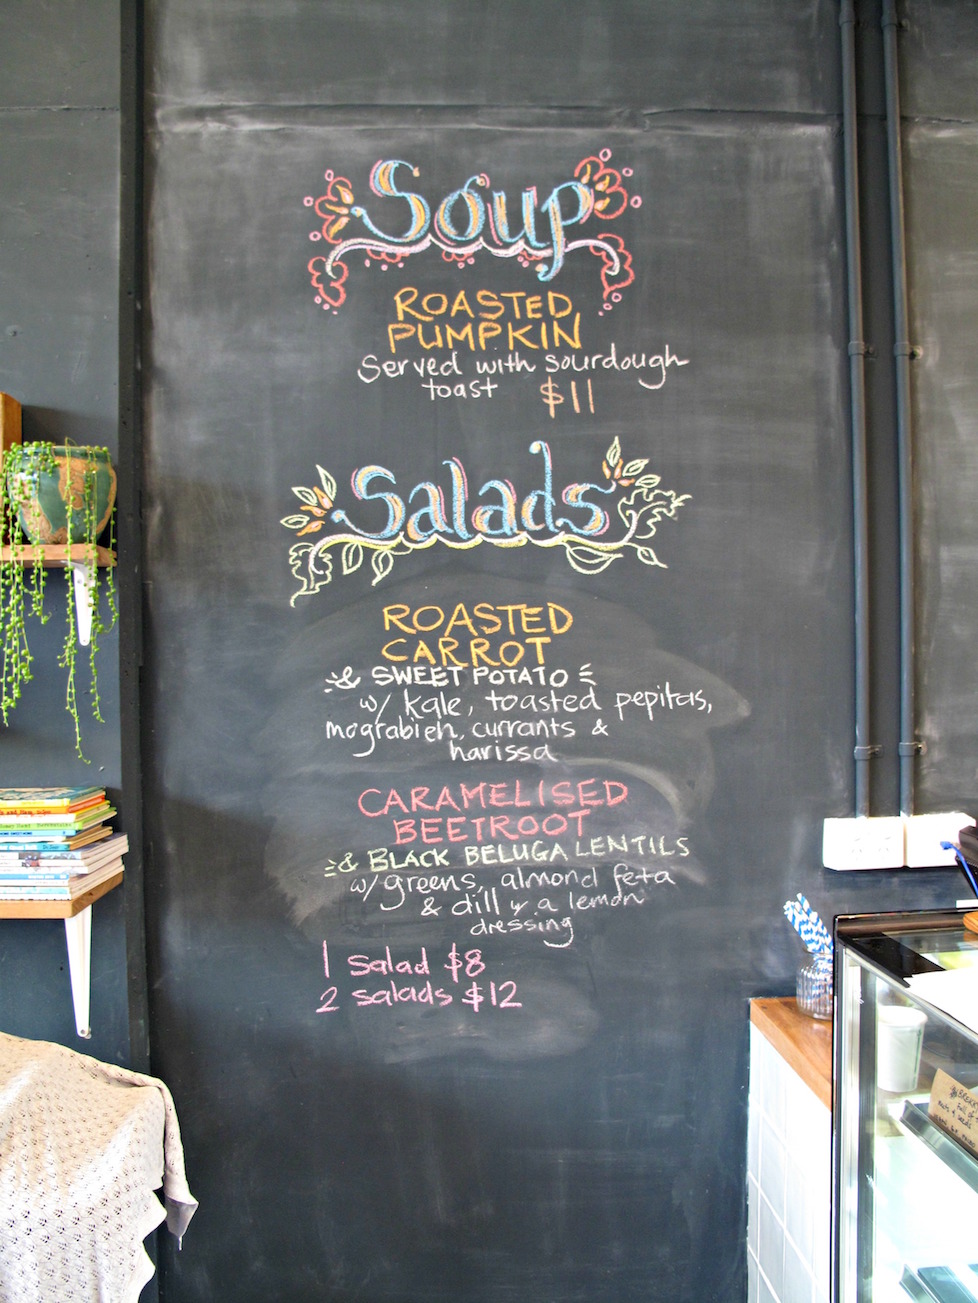 Soup
ROASTED
PUMPKIN
Served with sourdough
toast $11
Salads
ROASTED
CARROT
& SWEET POTATO
w/ kale, toasted pepitas,
mograbieh, currants &
harissa
CARAMELISED
BEETROOT
& BLACK BELUGA LENTILS
w/ greens, almond feta
& dill w a lemon
dressing
1 salad $8
2 salads $12